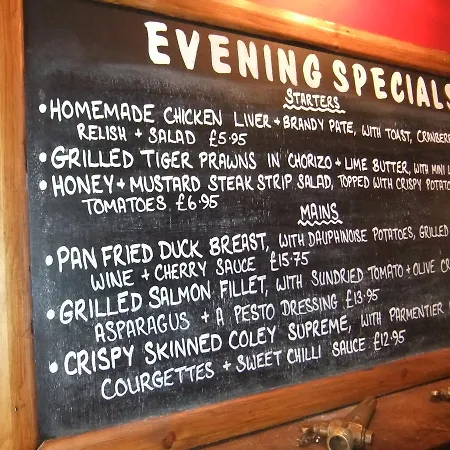 EVENING SPECIALS
STARTERS
• HOMEMADE CHICKEN LIVER + BRANDY PATE, WITH TOAST, CRANBER
RELISH + SALAD £5.95
• GRILLED TIGER PRAWNS IN CHORIZO + LIME BUTTER, WITH MINI
• HONEY + MUSTARD STEAK STRIP SALAD, TOPPED WITH CRISPY POTATO
TOMATOES £6.95
MAINS
• PAN FRIED DUCK BREAST, WITH DAUPHINOISE POTATOES, GRILLED
WINE + CHERRY SAUCE £15.75
• GRILLED SALMON FILLET, WITH SUNDRIED TOMATO + OLIVE CR
ASPARAGUS + A PESTO DRESSING £13.95
• CRISPY SKINNED COLEY SUPREME, WITH PARMENTIER
COURGETTES + SWEET CHILLI SAUCE £12.95